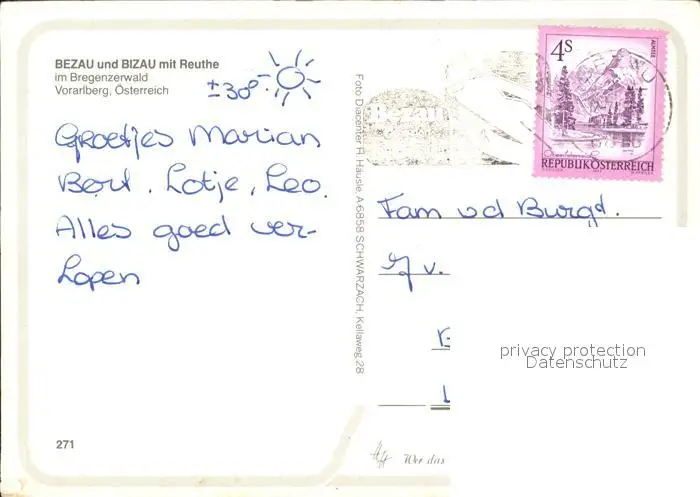 BEZAU und BIZAU mit Reuthe
im Bregenzerwald
Vorarlberg, Österreich
±30°
Groetjes Marian
Bert. Lotje, Leo.
Alles goed ver-
lopen
271
Foto Diacenter H. Häusle, A-6858 SCHWARZACH, Kellaweg 28
BEZAU
4S
ALMSEE
REPUBLIK ÖSTERREICH
Fam vd Burgt.
v.
Wer das
privacy protection
Datenschutz